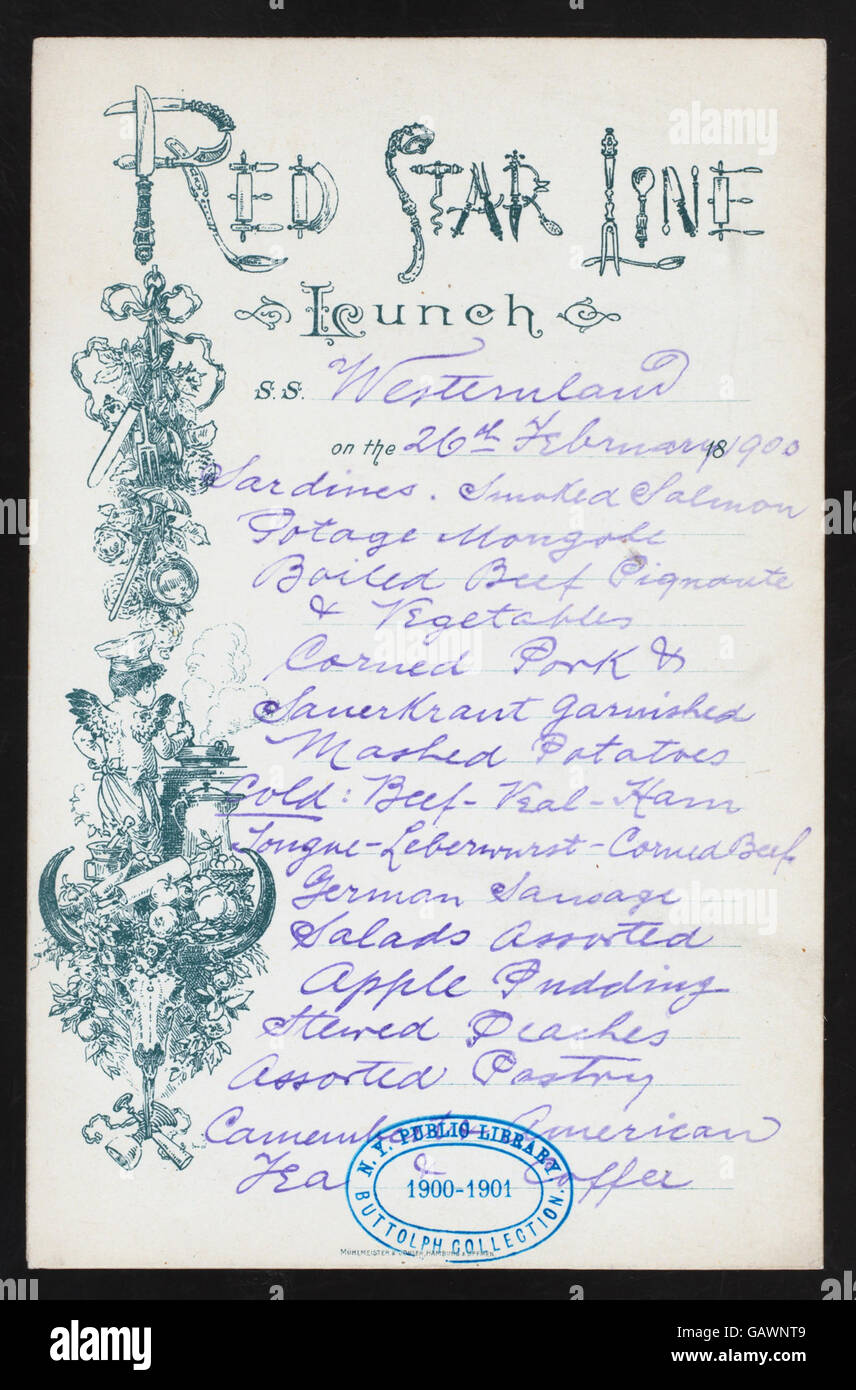 RED STAR LINE
Lunch
S.S. Westernland
on the 26th February 18 1900
Sardines. Smoked Salmon
Potage Mongole
Boiled Beef Piqnante
& Vegetables
Corned Pork &
Sauerkraut garnished
Mashed Potatoes
Cold: Beef - Veal - Ham
Tongue - Leberwurst - Corned Beef
German Sausage
Salads Assorted
Apple Pudding
Stewed Peaches
Assorted Pastry
Camembert American
Tea & Coffee
N.Y. PUBLIC LIBRARY
1900-1901
BUTTOLPH COLLECTION.
MÜHLMEISTER & JOHLER, HAMBURG
alamy stock photo
GAWNT9
www.alamy.com